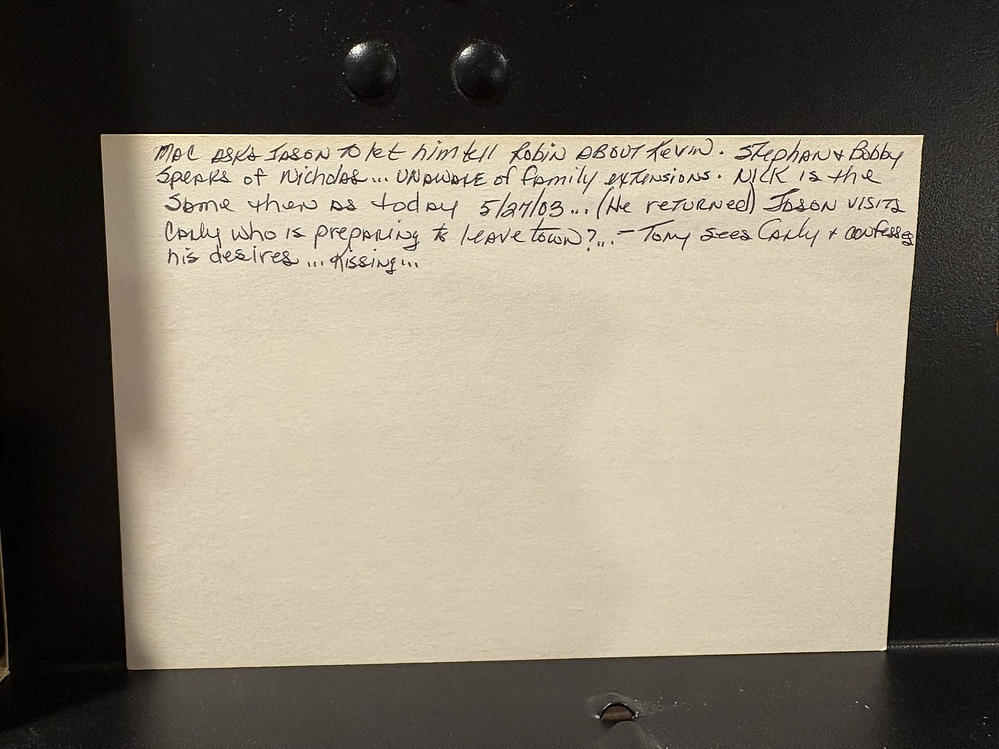 MAC ASKS JASON TO let him tell Robin ABOUT Kevin. Stephan & Bobby
Speaks of Nicholas... UNAWARE of family extensions. NICK is the
Same then as today 5/27/03... (He returned) JASON VISITS
Carly who is preparing to leave town?... - Tony sees Carly & confesses
his desires... Kissing...